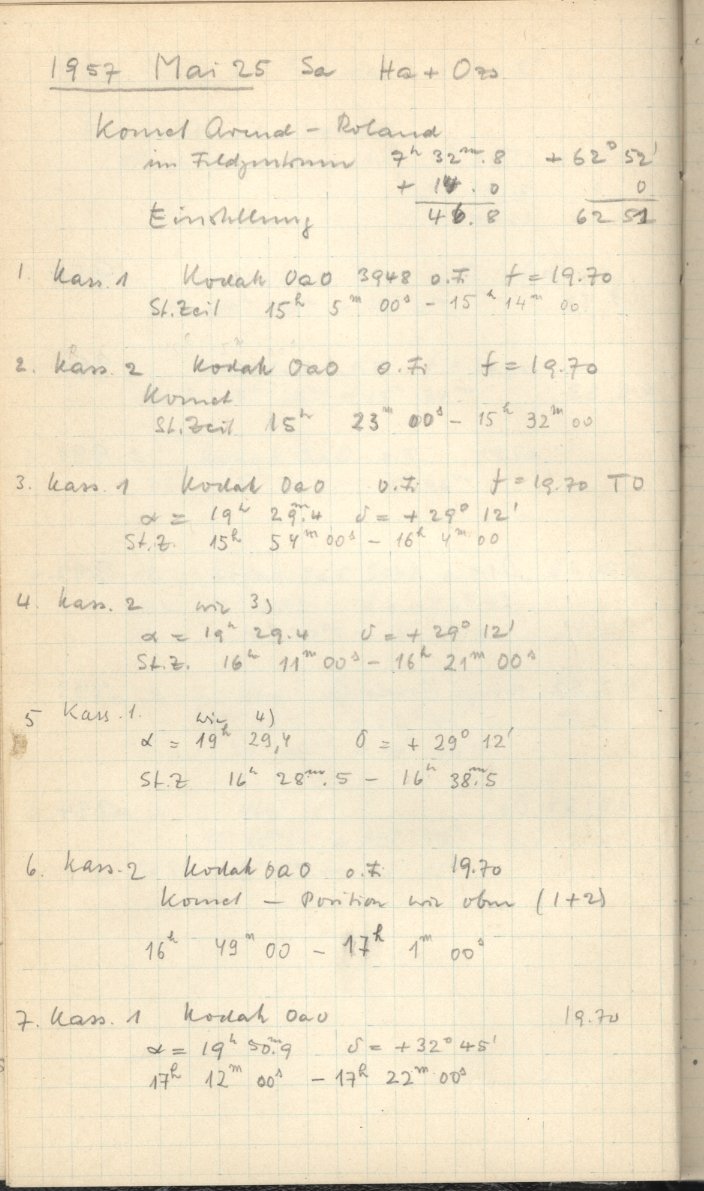 1957 Mai 25 Sa Ha + Ozs
Komet Arend - Roland
im Feldzentrum 7h 32m.8 + 62° 52'
+ 14.0 0
Einstellung 46.8 62 52
1. Kass. 1 Kodak OaO 3948 o.Fi f = 19.70
St.Zeit 15h 5m 00s - 15h 14m 00
2. Kass. 2 Kodak OaO o.Fi f = 19.70
Komet
St.Zeit 15h 23m 00s - 15h 32m 00
3. Kass. 1 Kodak OaO o.Fi f = 19.70 TO
α = 19h 29m.4 δ = + 29° 12'
St.Z. 15h 54m 00s - 16h 4m 00
4. Kass. 2 wie 3)
α = 19h 29.4 δ = + 29° 12'
St.Z. 16h 11m 00s - 16h 21m 00s
5 Kass. 1. wie 4)
α = 19h 29,4 δ = + 29° 12'
St.Z 16h 28m.5 - 16h 38m.5
6. Kass. 2 Kodak OaO o.Fi 19.70
Komet - Position wie oben (1+2)
16h 49m 00 - 17h 1m 00s
7. Kass. 1 Kodak OaO 19.70
α = 19h 50m.9 δ = +32° 45'
17h 12m 00s - 17h 22m 00s